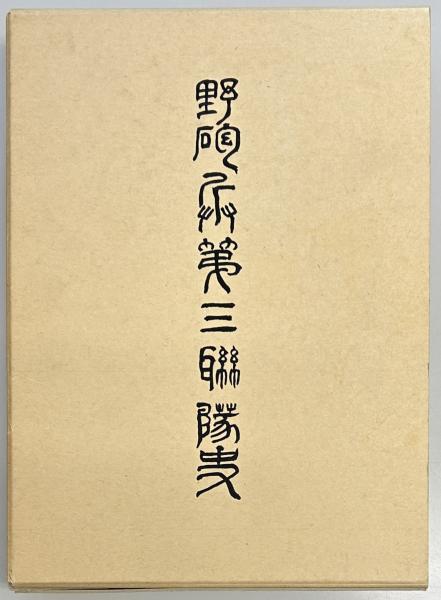 野砲兵第三聯隊史